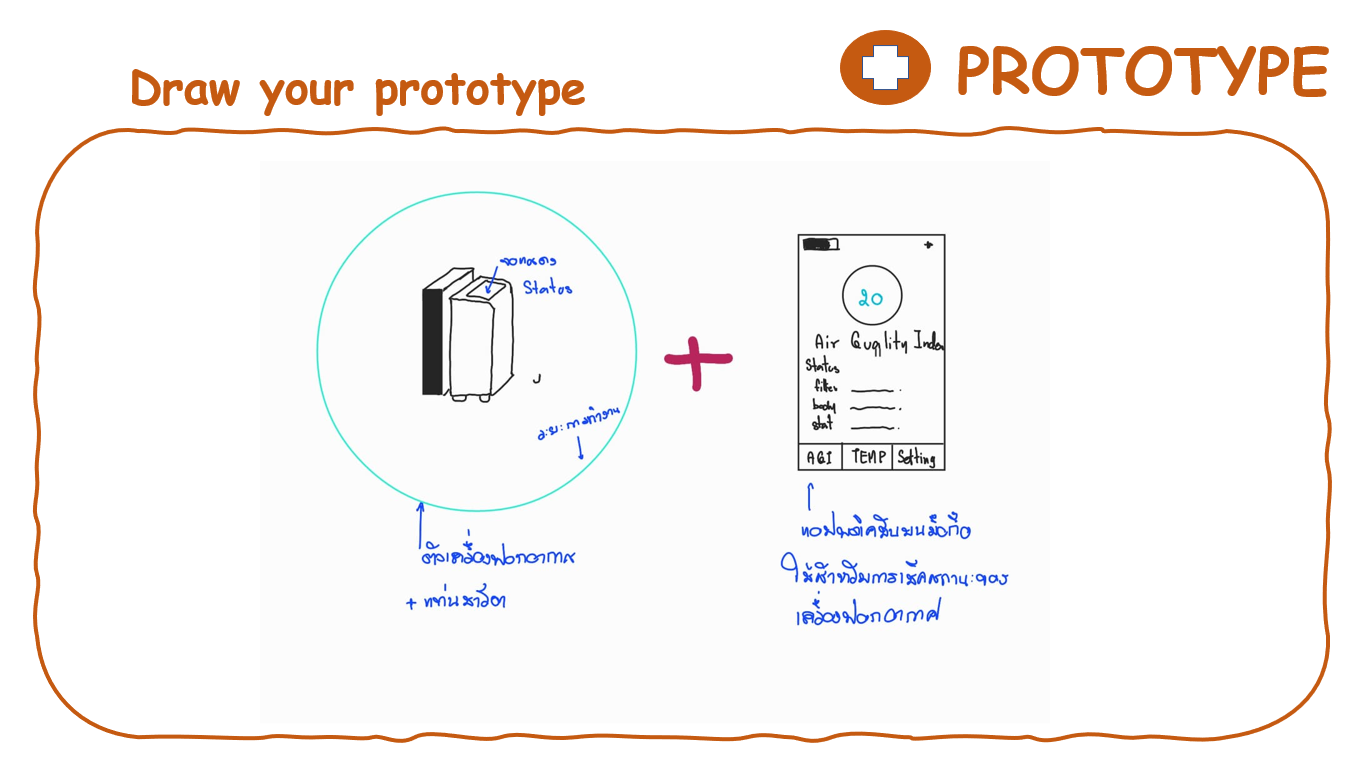 PROTOTYPE
Draw your prototype
จอแสดง
Status
ระยะการทำงาน
ตัวเครื่องฟอกอากาศ
+ แท่นชาร์จ
20
Air Quality Index
Status
filter
body
stat
AQI TEMP Setting
แอปพลิเคชันบนมือถือ
ใช้สำหรับการเช็คสถานะของ
เครื่องฟอกอากาศ